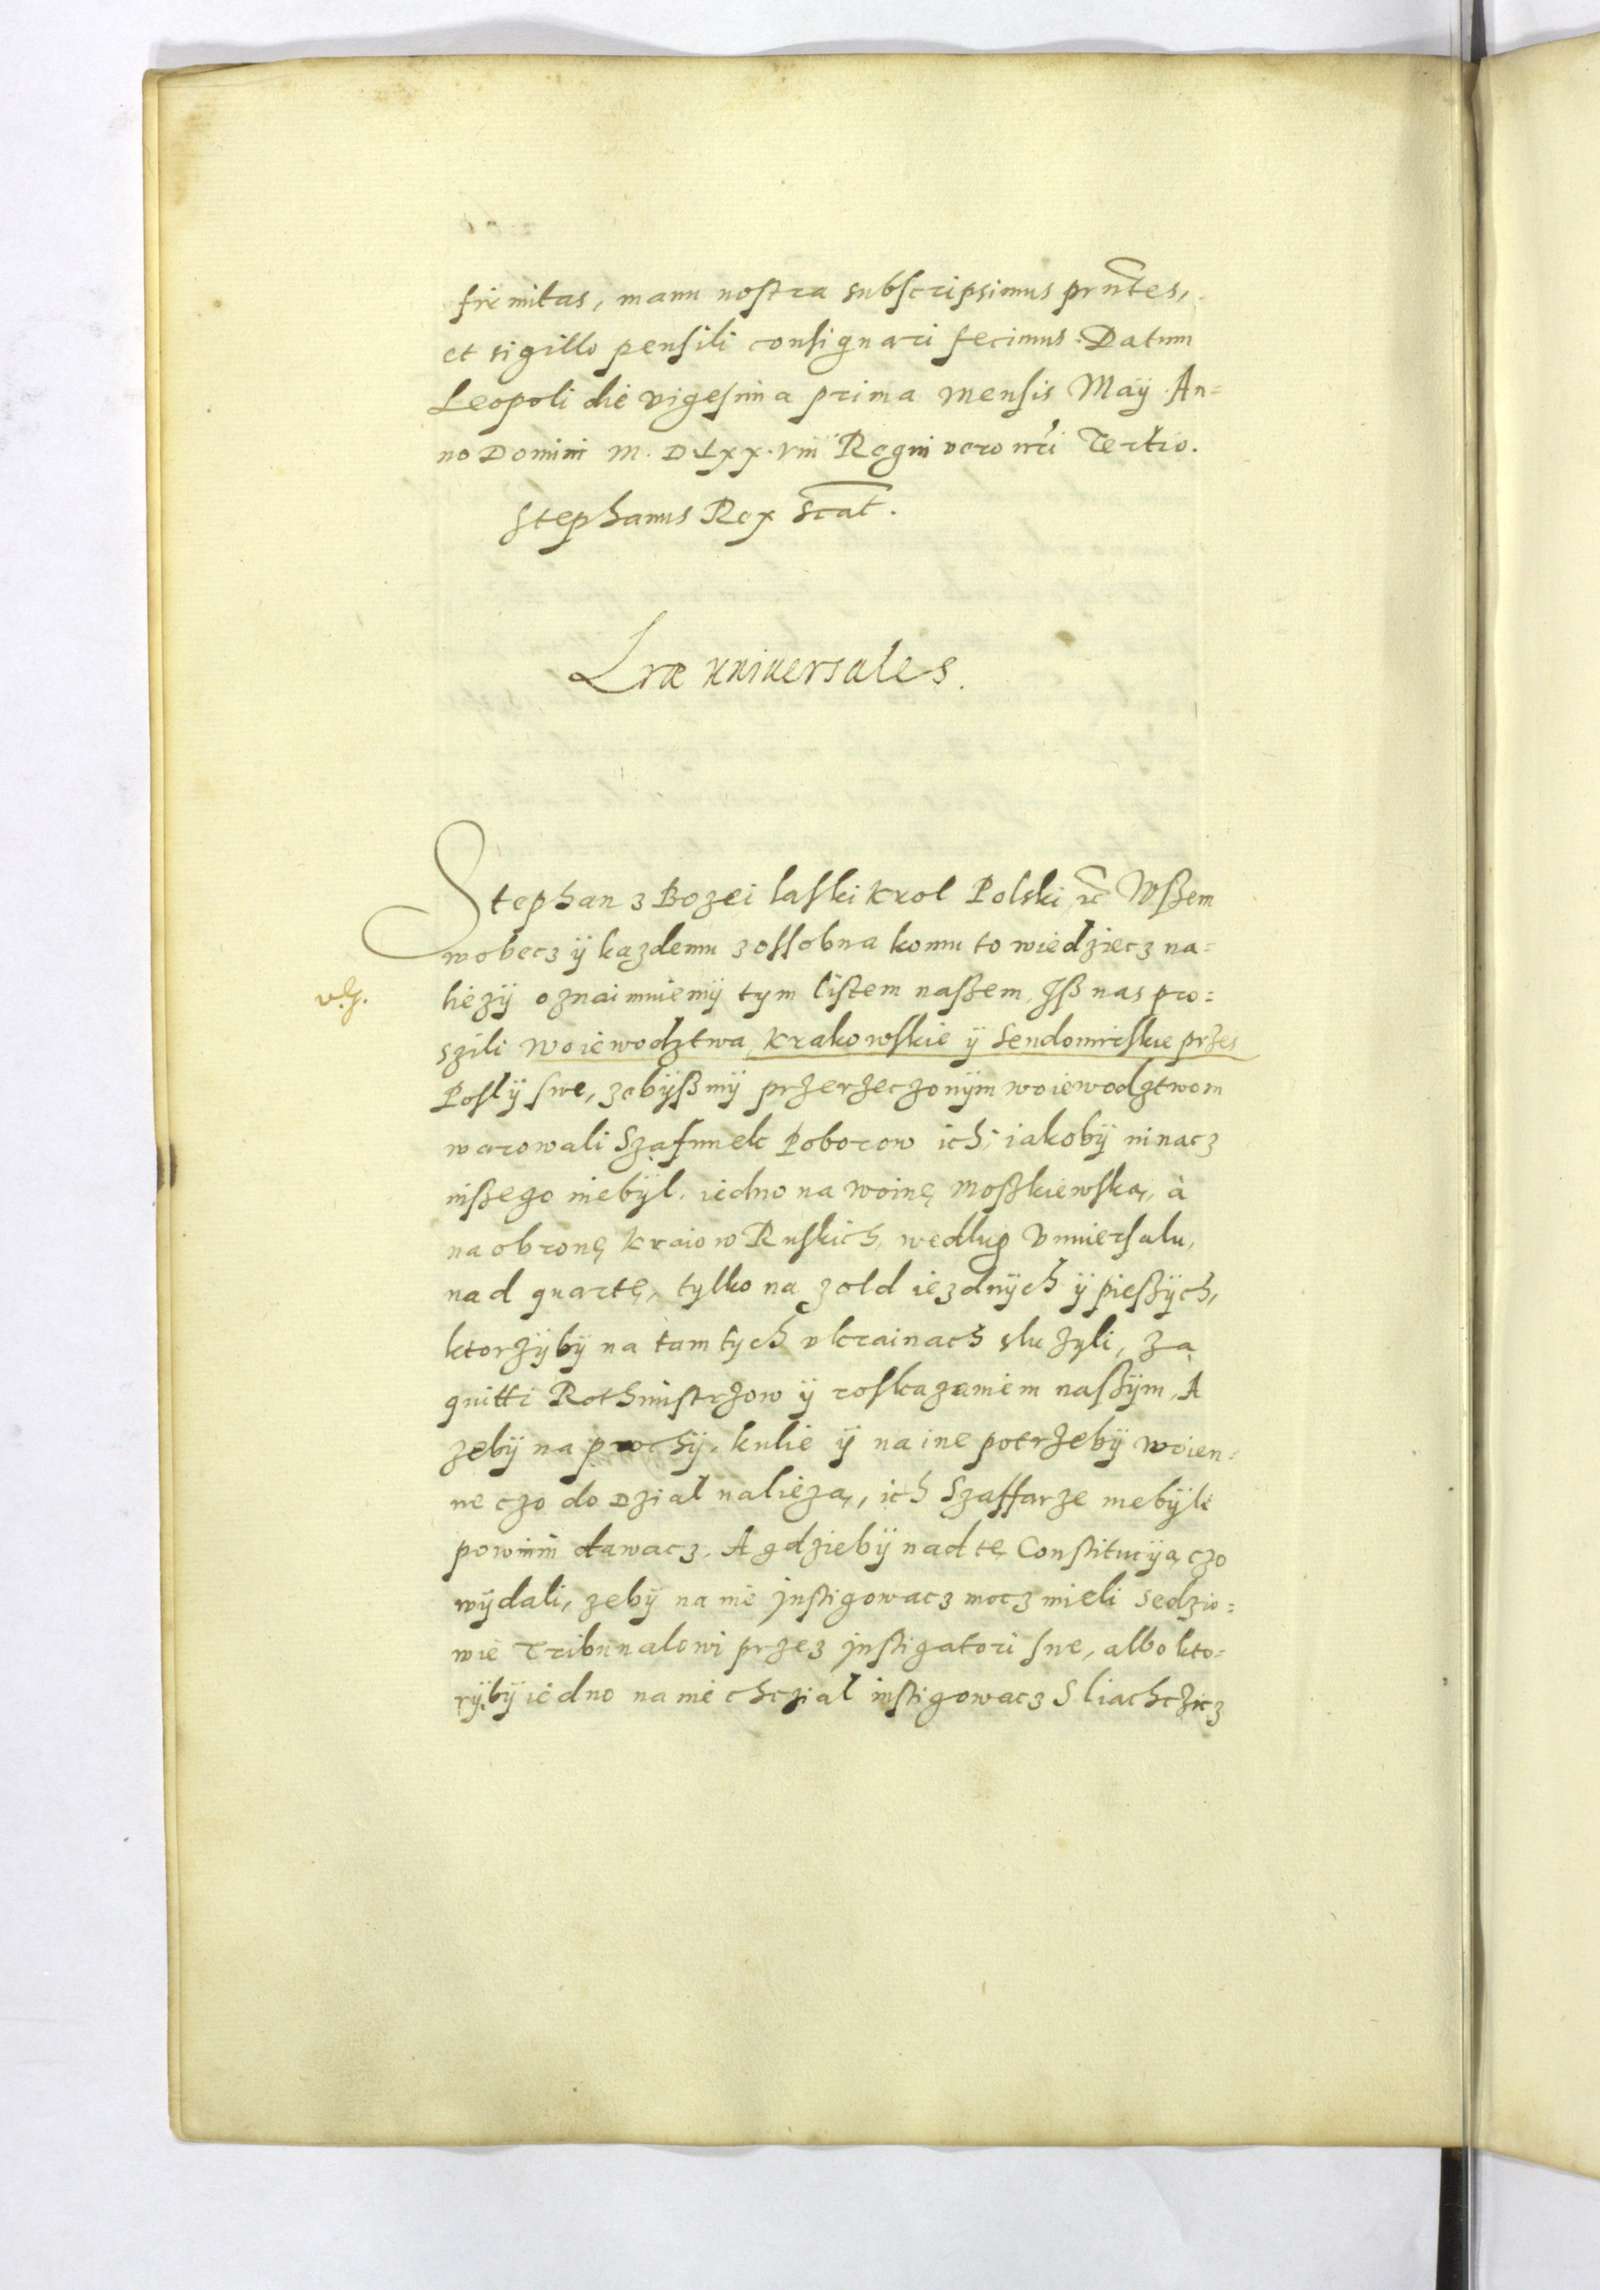 firmitas, manu nostra subscripsimus prñtes,
et sigillo pensili consignari fecimus. Datum
Leopoli die vigesima prima mensis Maÿ An=
no Domini M. D. Lxx. viii Regni vero nri Tertio.
Stephanus Rex scat.
Lræ uniuersales.
Stephan z Bozei laski Krol Polski, etc Wßem
wobecz ÿ kazdemu zossobna komu to wiedziecz na=
liezÿ oznaimuiemÿ tym listem naßem, Iß nas pro=
szili Woiewodztwa, Krakowskie ÿ Sendomirskie przes
Poslÿ swe, zebÿßmÿ przerzeczonÿm woiewodztwom
warowali Szafunek Poborow ich, iakobÿ ninacz
inßego niebÿl, iedno na woinę Moßkiewską, à
na obronę Kraiow Ruskich, wedlug Vniuersalu,
nad quartę, tylko na zold iezdnÿch ÿ pießÿch,
ktorzÿbÿ na tamtych vkrainach sluzyli, za
quitti Rothmistrzow ÿ roskazaniem naßÿm, A
zebÿ na prochÿ, kulie ÿ na ine potrzebÿ woien=
ne czo do Dzial nalieza, ich Szaffarze niebÿli
powinni dawacz. A gdziebÿ nad tę Constitucÿą czo
wÿdali, zebÿ na nie instigowacz mocz mieli Sedzio=
wie Tribunalowi przez instigatori swe, albo kto=
rÿbÿ iedno na nie chczial instigowacz Sliachczicz